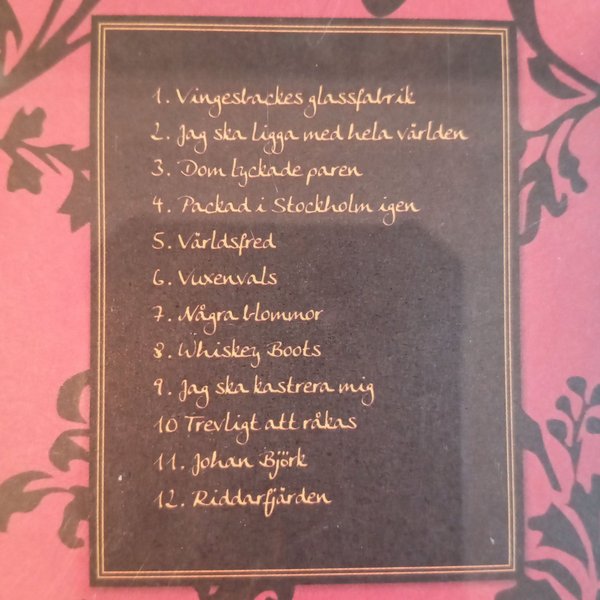 1. Vingesbackes glassfabrik
2. Jag ska ligga med hela världen
3. Dom lyckade paren
4. Packad i Stockholm igen
5. Världsfred
6. Vuxenvals
7. Några blommor
8. Whiskey Boots
9. Jag ska kastrera mig
10 Trevligt att råkas
11. Johan Björk
12. Riddarfjärden